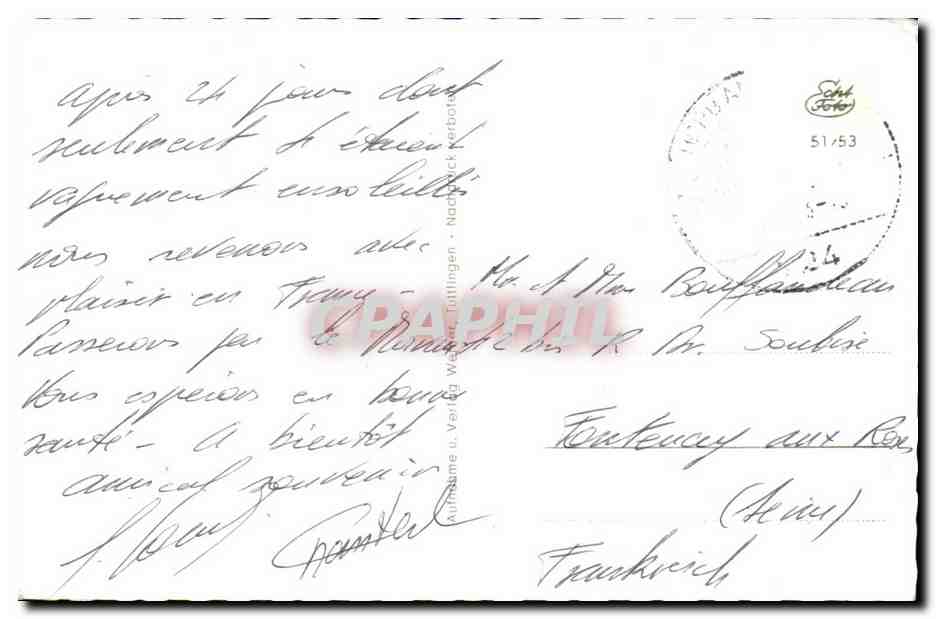 après 24 jours dont
seulement 4 étaient
vaguement ensoleillés
nous revenons avec
plaisir en France -
Passerons par le
Vous espérons en bonne
santé - A bientôt
amical souvenir
Chantal
Aufnahme u. Verlag Tuttlingen · Nachdruck verboten
Echt
Foto
51/53
Mr. & Mme
2 bis R Pr. Soubise
Fontenay aux Roses
(Seine)
Frankreich
CPAPHIL